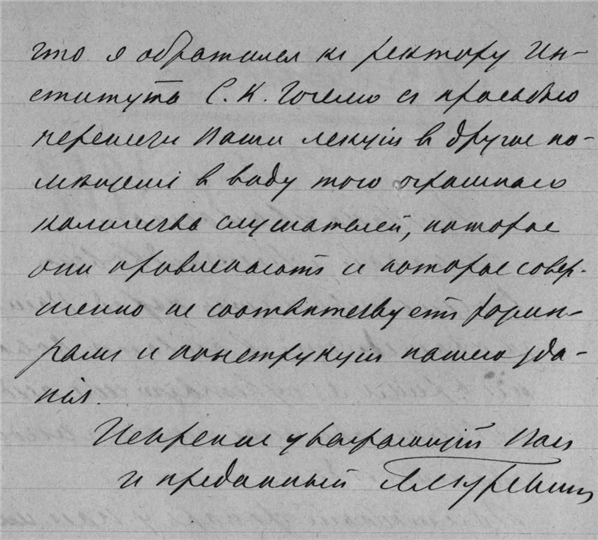 что я обратился къ ректору Ин-
ститута С. К. Гогелю съ просьбою
перенести Ваши лекціи в другое по-
мѣщеніе в виду того огромнаго
количества слушателей, которое
они привлекаютъ и которое совер-
шенно не соотвѣтствуетъ
и конструкціи нашего зда-
нія.
Искренне уважающій Васъ
и преданный